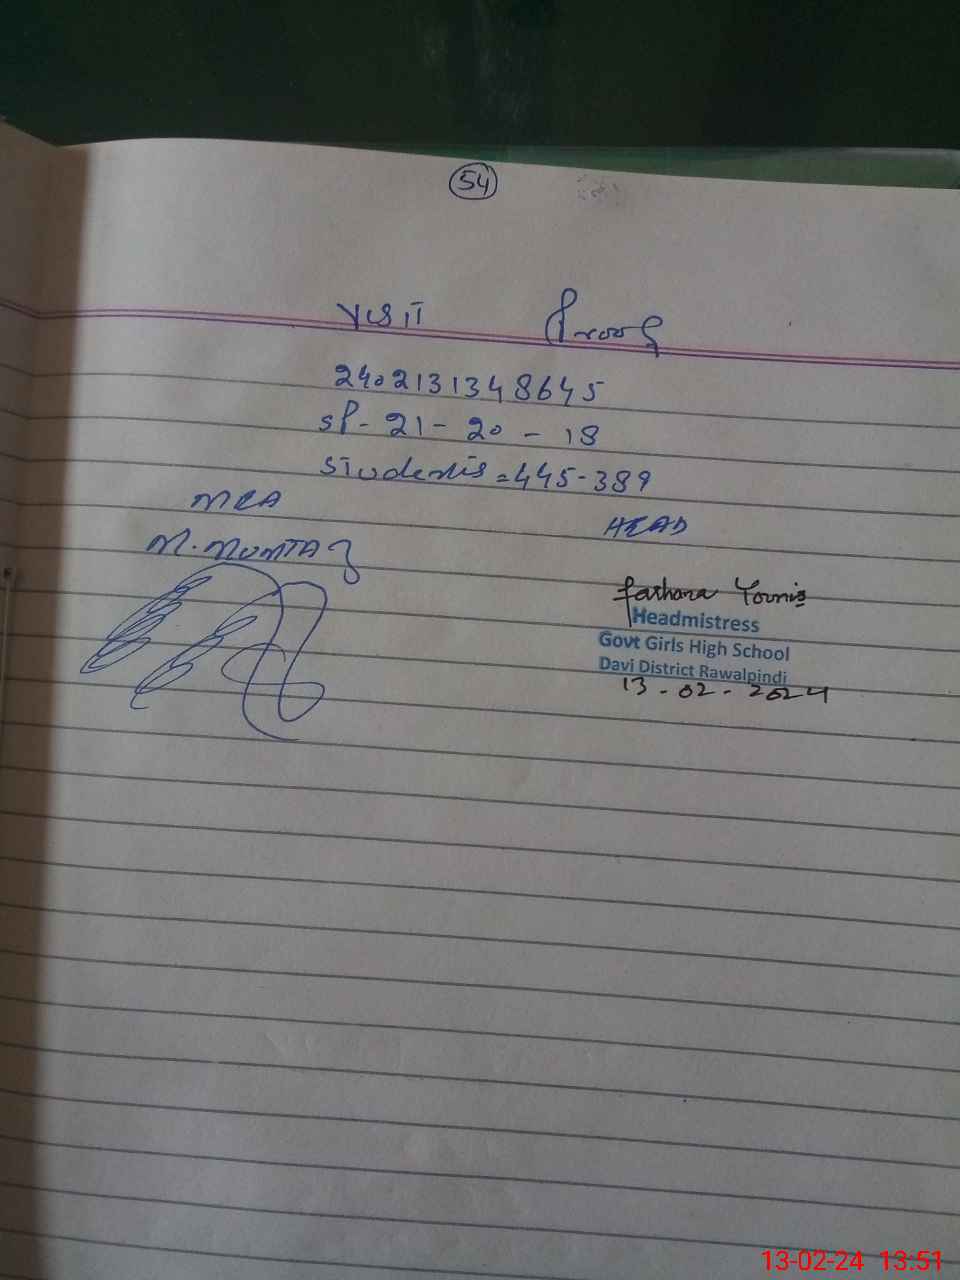 54
VISIT Proof
2402131348645
SP - 21 - 20 - 18
Students = 445-389
MEA HEAD
M. MUMTAZ
Farhana Younis
Headmistress
Govt Girls High School
Davi District Rawalpindi
13 - 02 - 2024
13-02-24 13:51